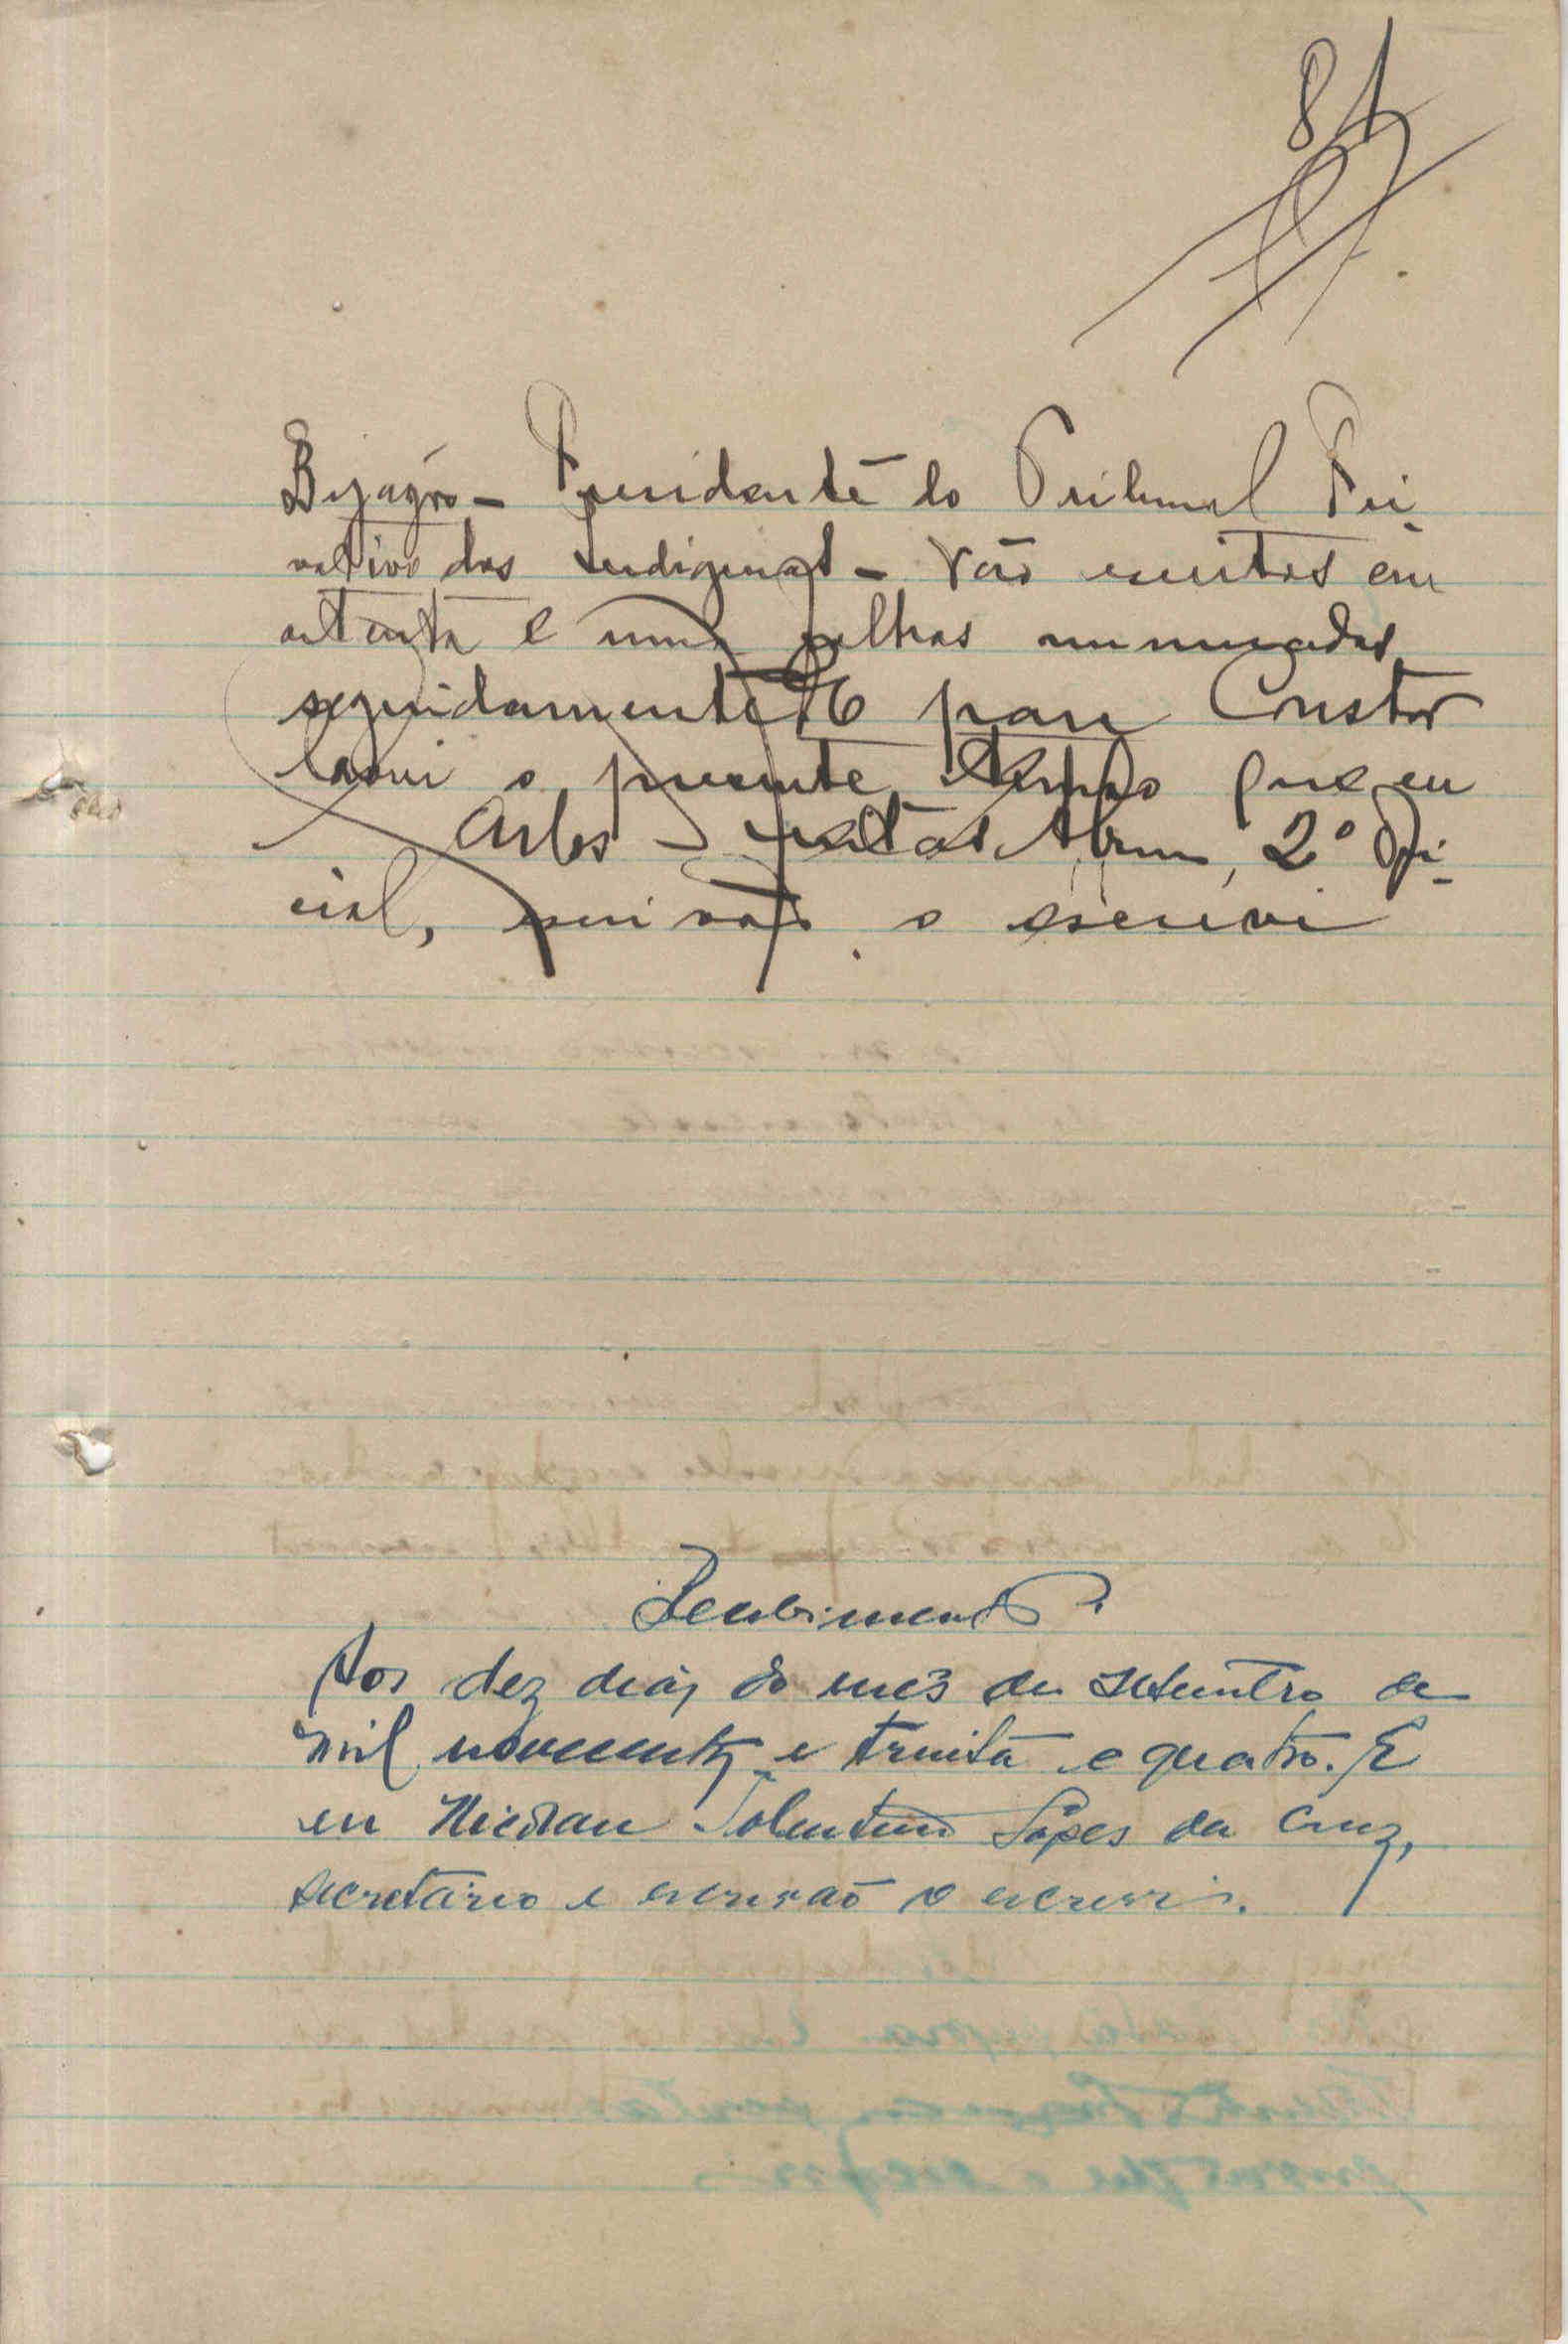 81
Bijagós - Presidente do Tribunal Pri-
vativo dos Indigenas - Vão escritos em
oitenta e uma folhas numeradas
seguidamente E para Constar
lavrei o presente termo que eu
Carlos Abreu, 2º Ofi-
cial, escrivão o escrevi
Recebimento
Aos dez dias do mês de setembro de
mil novecentos e trinta e quatro. E
eu Nicolau Tolentino Lopes da Cruz,
secretário e escrivão o escrevi.